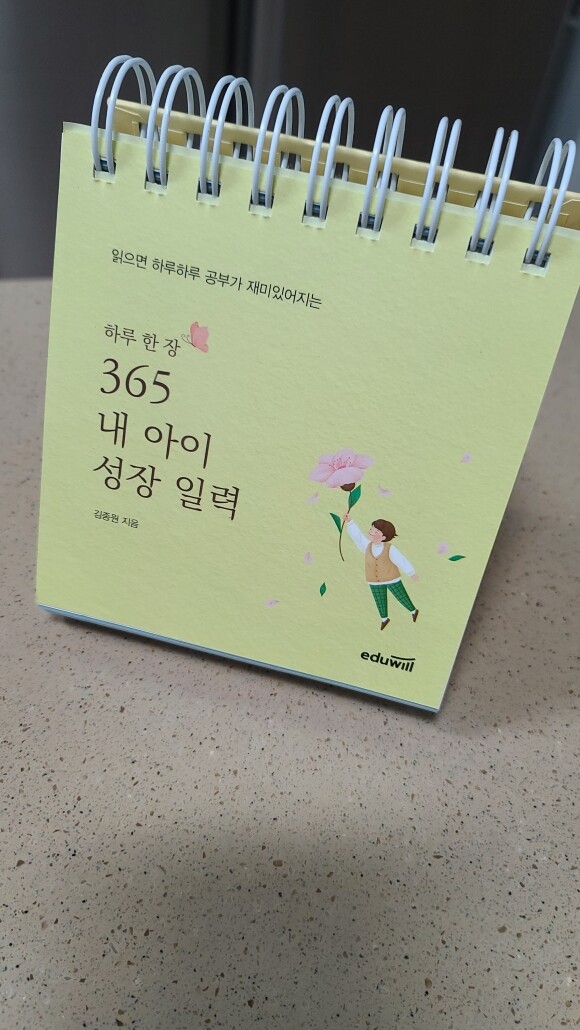 읽으면 하루하루 공부가 재미있어지는
하루 한 장
365
내 아이
성장 일력
김종원 지음
eduwill